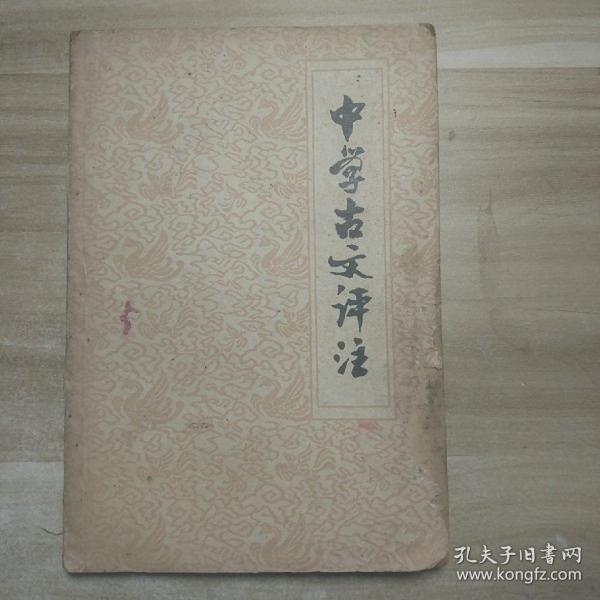 中学古文评注
孔夫子旧书网
www.kongfz.com